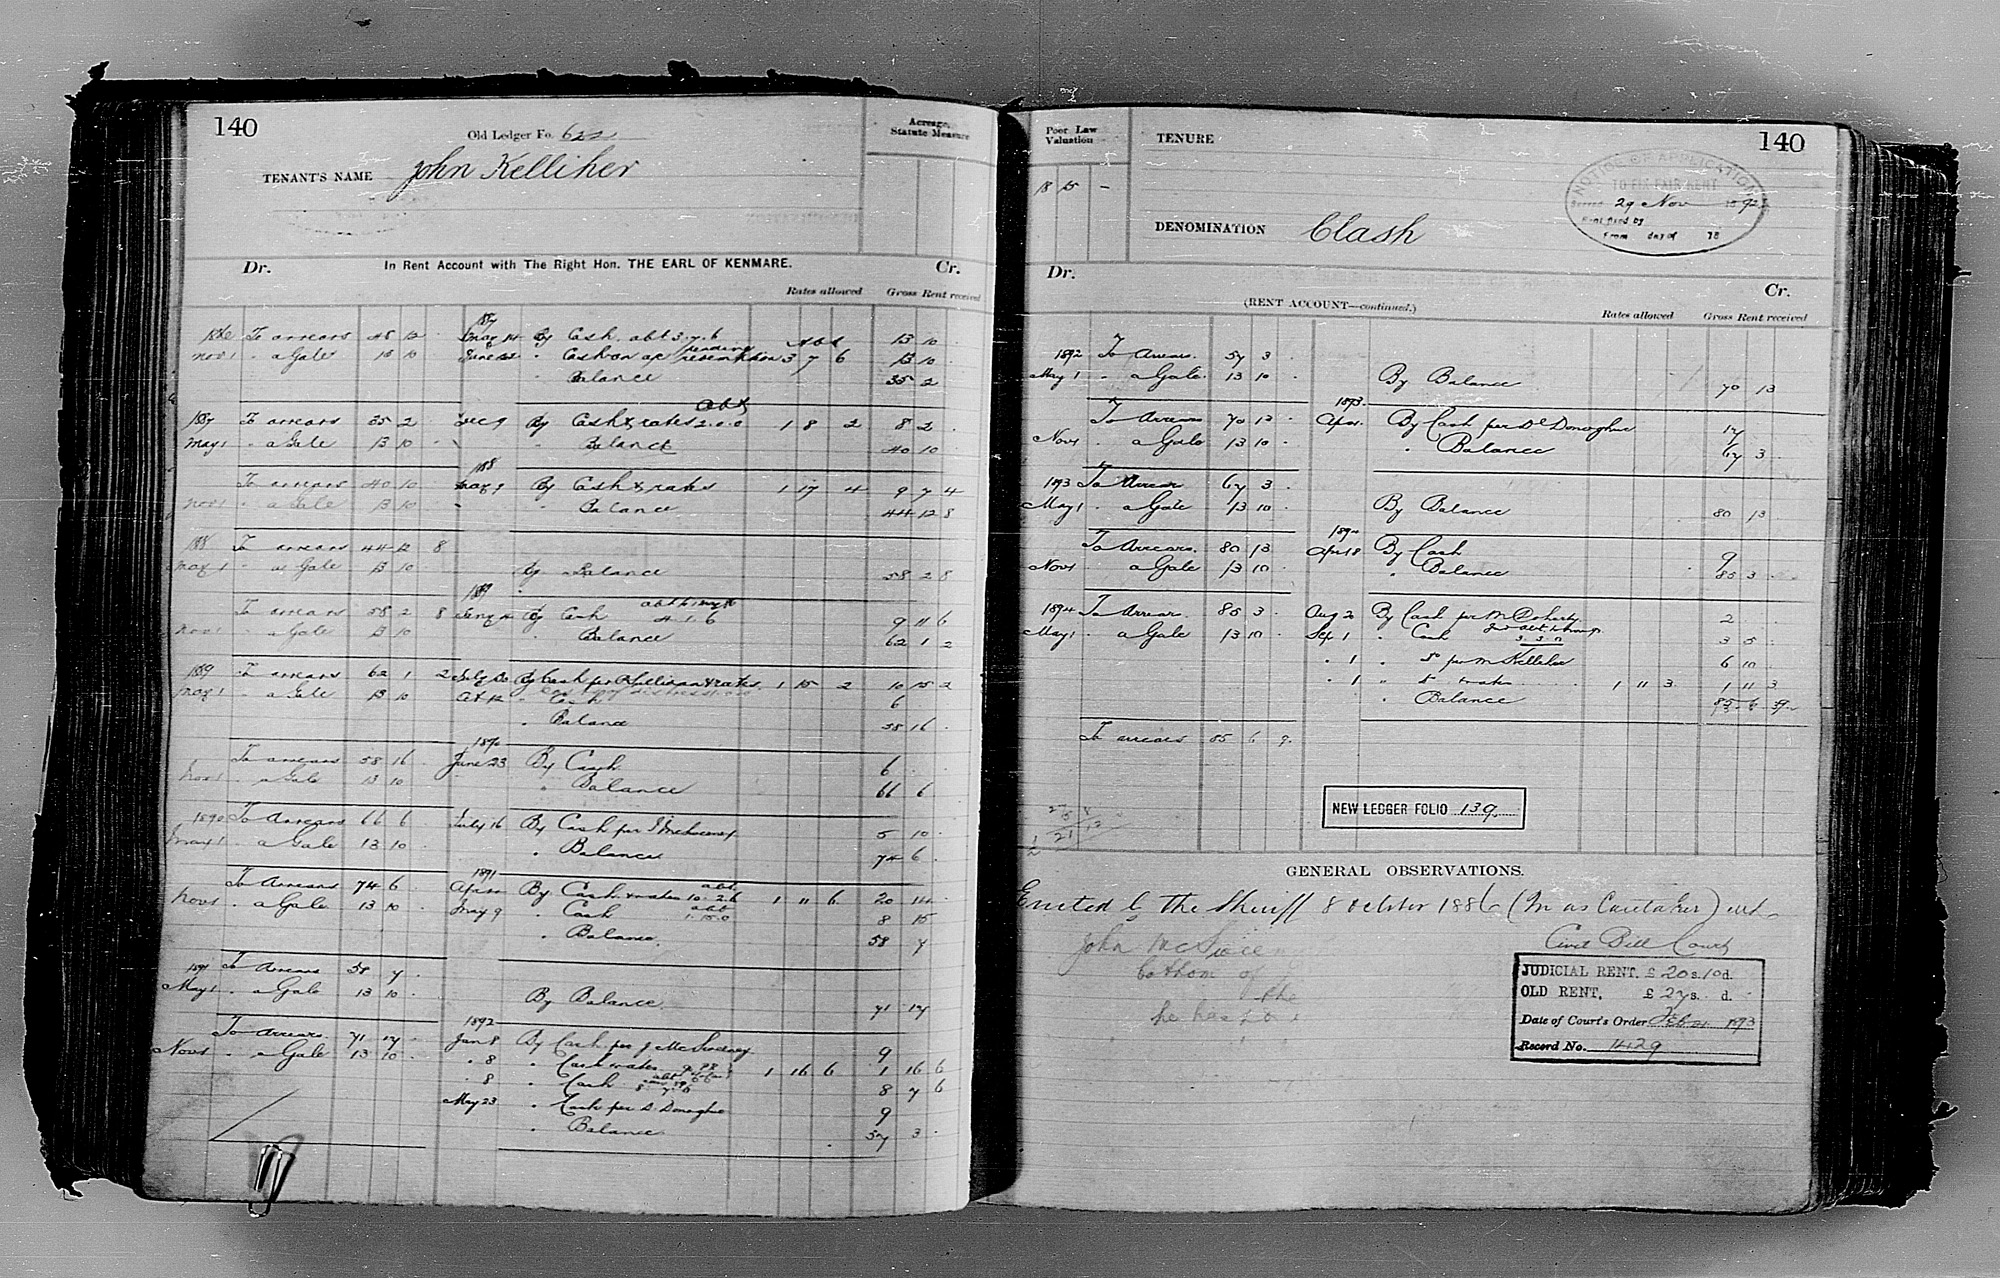 140
Old Ledger Fo. 622
Acreage, Statute Measure
TENANT'S NAME John Kelliher
Dr. In Rent Account with The Right Hon. THE EARL OF KENMARE. Cr.
Rates allowed Gross Rent received
1886 To arrears 48 12 . 1887 May 14 By Cash abt 3.7.6 13 10 .
Nov 1 " a Gale 13 10 " Cash on a/c pending 3 7 6 13 10 .
" Balance 35 2
1887 To arrears 35 2 Dec 9 By Cash & rates abt 2.0.0 1 8 2 8 2
May 1 " a Gale 13 10 " Balance 40 10
1888
To arrears 40 10 May 9 By Cash & rates 1 17 4 9 7 4
Nov 1 " a Gale 13 10 " Balance 44 12 8
1888 To arrears 44 12 8
May 1 " a Gale 13 10 By Balance 58 2 8
1889
To arrears 58 2 8 By Cash 4.1.6 9 11 6
Nov 1 " a Gale 13 10 " Balance 62 1 2
1889 To arrears 62 1 2 By Cash per & rates 1 15 2 10 15 2
May 1 " a Gale 13 10 Oct 12 " Cash 6
" Balance 58 16
1890
To arrears 58 16 June 23 By Cash 6
Nov 1 " a Gale 13 10 " Balance 66 6
1890 To Arrears 66 6 July 16 By Cash per J McSweeney 5 10
May 1 " a Gale 13 10 " Balance 74 6
1891
To Arrears 74 6 By Cash & rates abt 10.2.6 1 11 6 20 14
Nov 1 " a Gale 13 10 May 9 " Cash abt 1.15.0 8 15
" Balance 58 7
1891 To Arrears 58 7
May 1 " a Gale 13 10 By Balance 71 17
1892
To Arrears 71 17 Jan 8 By Cash per J McSweeney 9
Nov 1 " a Gale 13 10 " 8 " Cash rates 1 16 6 1 16 6
" 8 " Cash 8 7 6
May 23 " Cash per D. Donoghue 9
" Balance 57 3
Poor Law Valuation
TENURE
140
18 15 -
NOTICE OF APPLICATION
TO FIX FAIR RENT
Served 29 Nov 1892
Rent fixed by
From day of 18
DENOMINATION Clash
Dr. Cr.
(RENT ACCOUNT—continued.)
Rates allowed Gross Rent received
1892 To Arrears 57 3
May 1 " a Gale 13 10 By Balance 70 13
1893
To Arrears 70 13 By Cash per D. Donoghue 17
Nov 1 " a Gale 13 10 " Balance 67 3
1893 To Arrear 67 3
May 1 " a Gale 13 10 By Balance 80 13
1894
To Arrears 80 13 Apr 18 By Cash 9
Nov 1 a Gale 13 10 " Balance 85 3
1894 To Arrear 85 3 Aug 2 By Cash per M Doherty 2
May 1 " a Gale 13 10 Sep 1 " Cash 3 5
" 1 " Do per M Kelliher 6 10
" 1 " rates 1 11 3 1 11 3
" Balance
To arrears 85 6 9
NEW LEDGER FOLIO 139
GENERAL OBSERVATIONS.
Evicted by the Sheriff 8 October 1886 (In as Caretaker)
Civil Bill Court
John McSwee
bothom of
the
he has
JUDICIAL RENT. £ 20 s. 10 d.
OLD RENT. £ 27 s. d.
Date of Court's Order Feb 1893
Record No. 1429